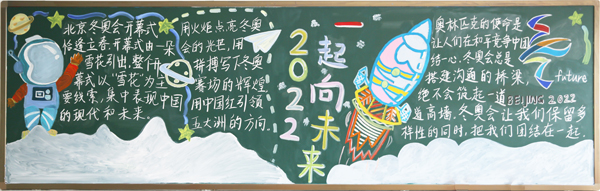 北京冬奥会开幕式
恰逢立春.开幕式由一朵
雪花引出,整个开
幕式以"雪花"为主
要线索,集中表现中国
的现代和未来。
用火炬点亮冬奥
会的光芒,用
拼搏写下冬奥
赛场的辉煌
用中国红引领
五大洲的方向.
2022
一起向未来
奥林匹克的使命是
让人们在和平竞争中团
结一心.冬奥会总是
搭建沟通的桥梁,
绝不会筑起一道
道高墙.冬奥会让我们保留多
样性的同时,把我们团结在一起.
future
BEIJING 2022